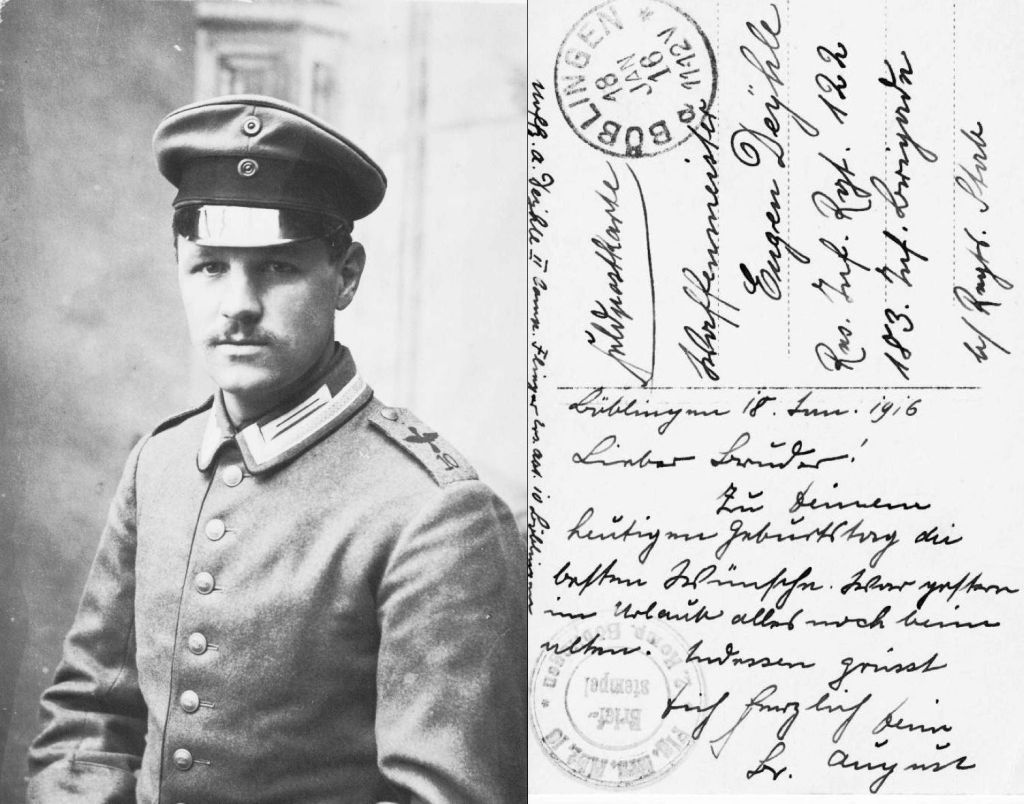 BÖBLINGEN
18
JAN
16
11-12V
Feldpostkarte
Waffenmeister
Eugen Deyhle
Res. Inf. Rgt. 122
183. Inf. Brigade
b/ Regts. Stab
Uoffz. A. Deyhle II Komp. Flieger Ers. Abt. 10 Böblingen
Böblingen 18. Jan. 1916
Lieber Bruder!
Zu Deinem
heutigen Geburtstag die
besten Wünsche. War gestern
im Urlaub alles noch beim
alten. Indessen grüsst
Dich herzlich Dein
Br. August
Flg. Ers. Abt. 10
2. Komp. Böblingen
Brief-
stempel
10